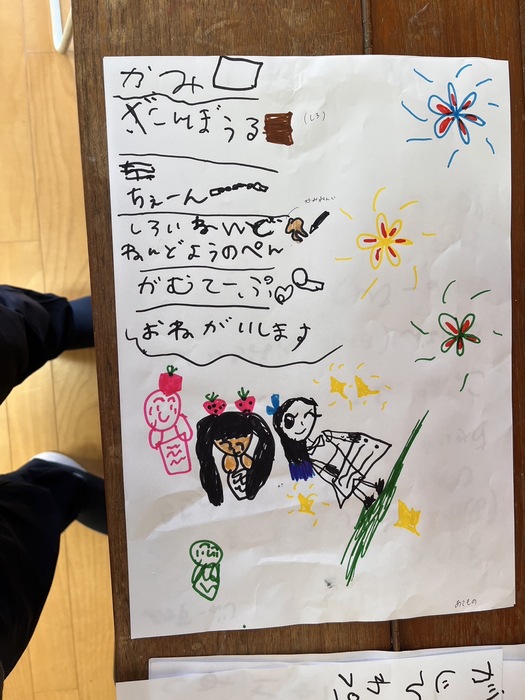 かみ
だんぼうる
(しろ)
ちぇーん
しろいねんど
ねんどようのぺん
がむてーぷ
おねがいします